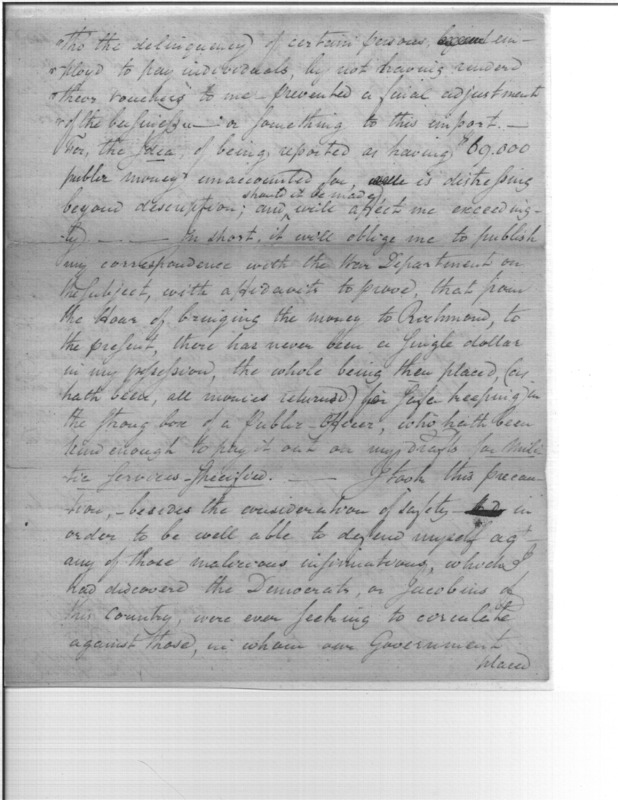 "tho the delinquency of certain persons, em-
"ployd to pay individuals, by not having renderd
"their vouchers to me prevented a final adjustment
"of the business — or something to this import. —
Sir, the Idea, of being reported as having $69.000
public money unaccounted for, is distressing
beyond description; and should it be made, will affect me exceeding-
-ly. — — In short, it will oblige me to publish
my correspondence with the War Department on
the subject, with affidavits to prove, that from
the Hour of bringing the money to Richmond, to
the present, there has never been a single dollar
in my possession, the whole being then placed, (as
hath been, all monies returned) for safe keeping in
the strong box of a Public-Officer, who hath been
kind enough to pay it out on my drafts for Mili
tia Services-Specified. — I took this precau
tion, - besides the consideration of safety - in
order to be well able to defend myself agt.
any of those malicious insinuations, which I
had discovered the Democrats, or Jacobins of
this Country, were ever seeking to circulate
against those, in whom our Government
placed